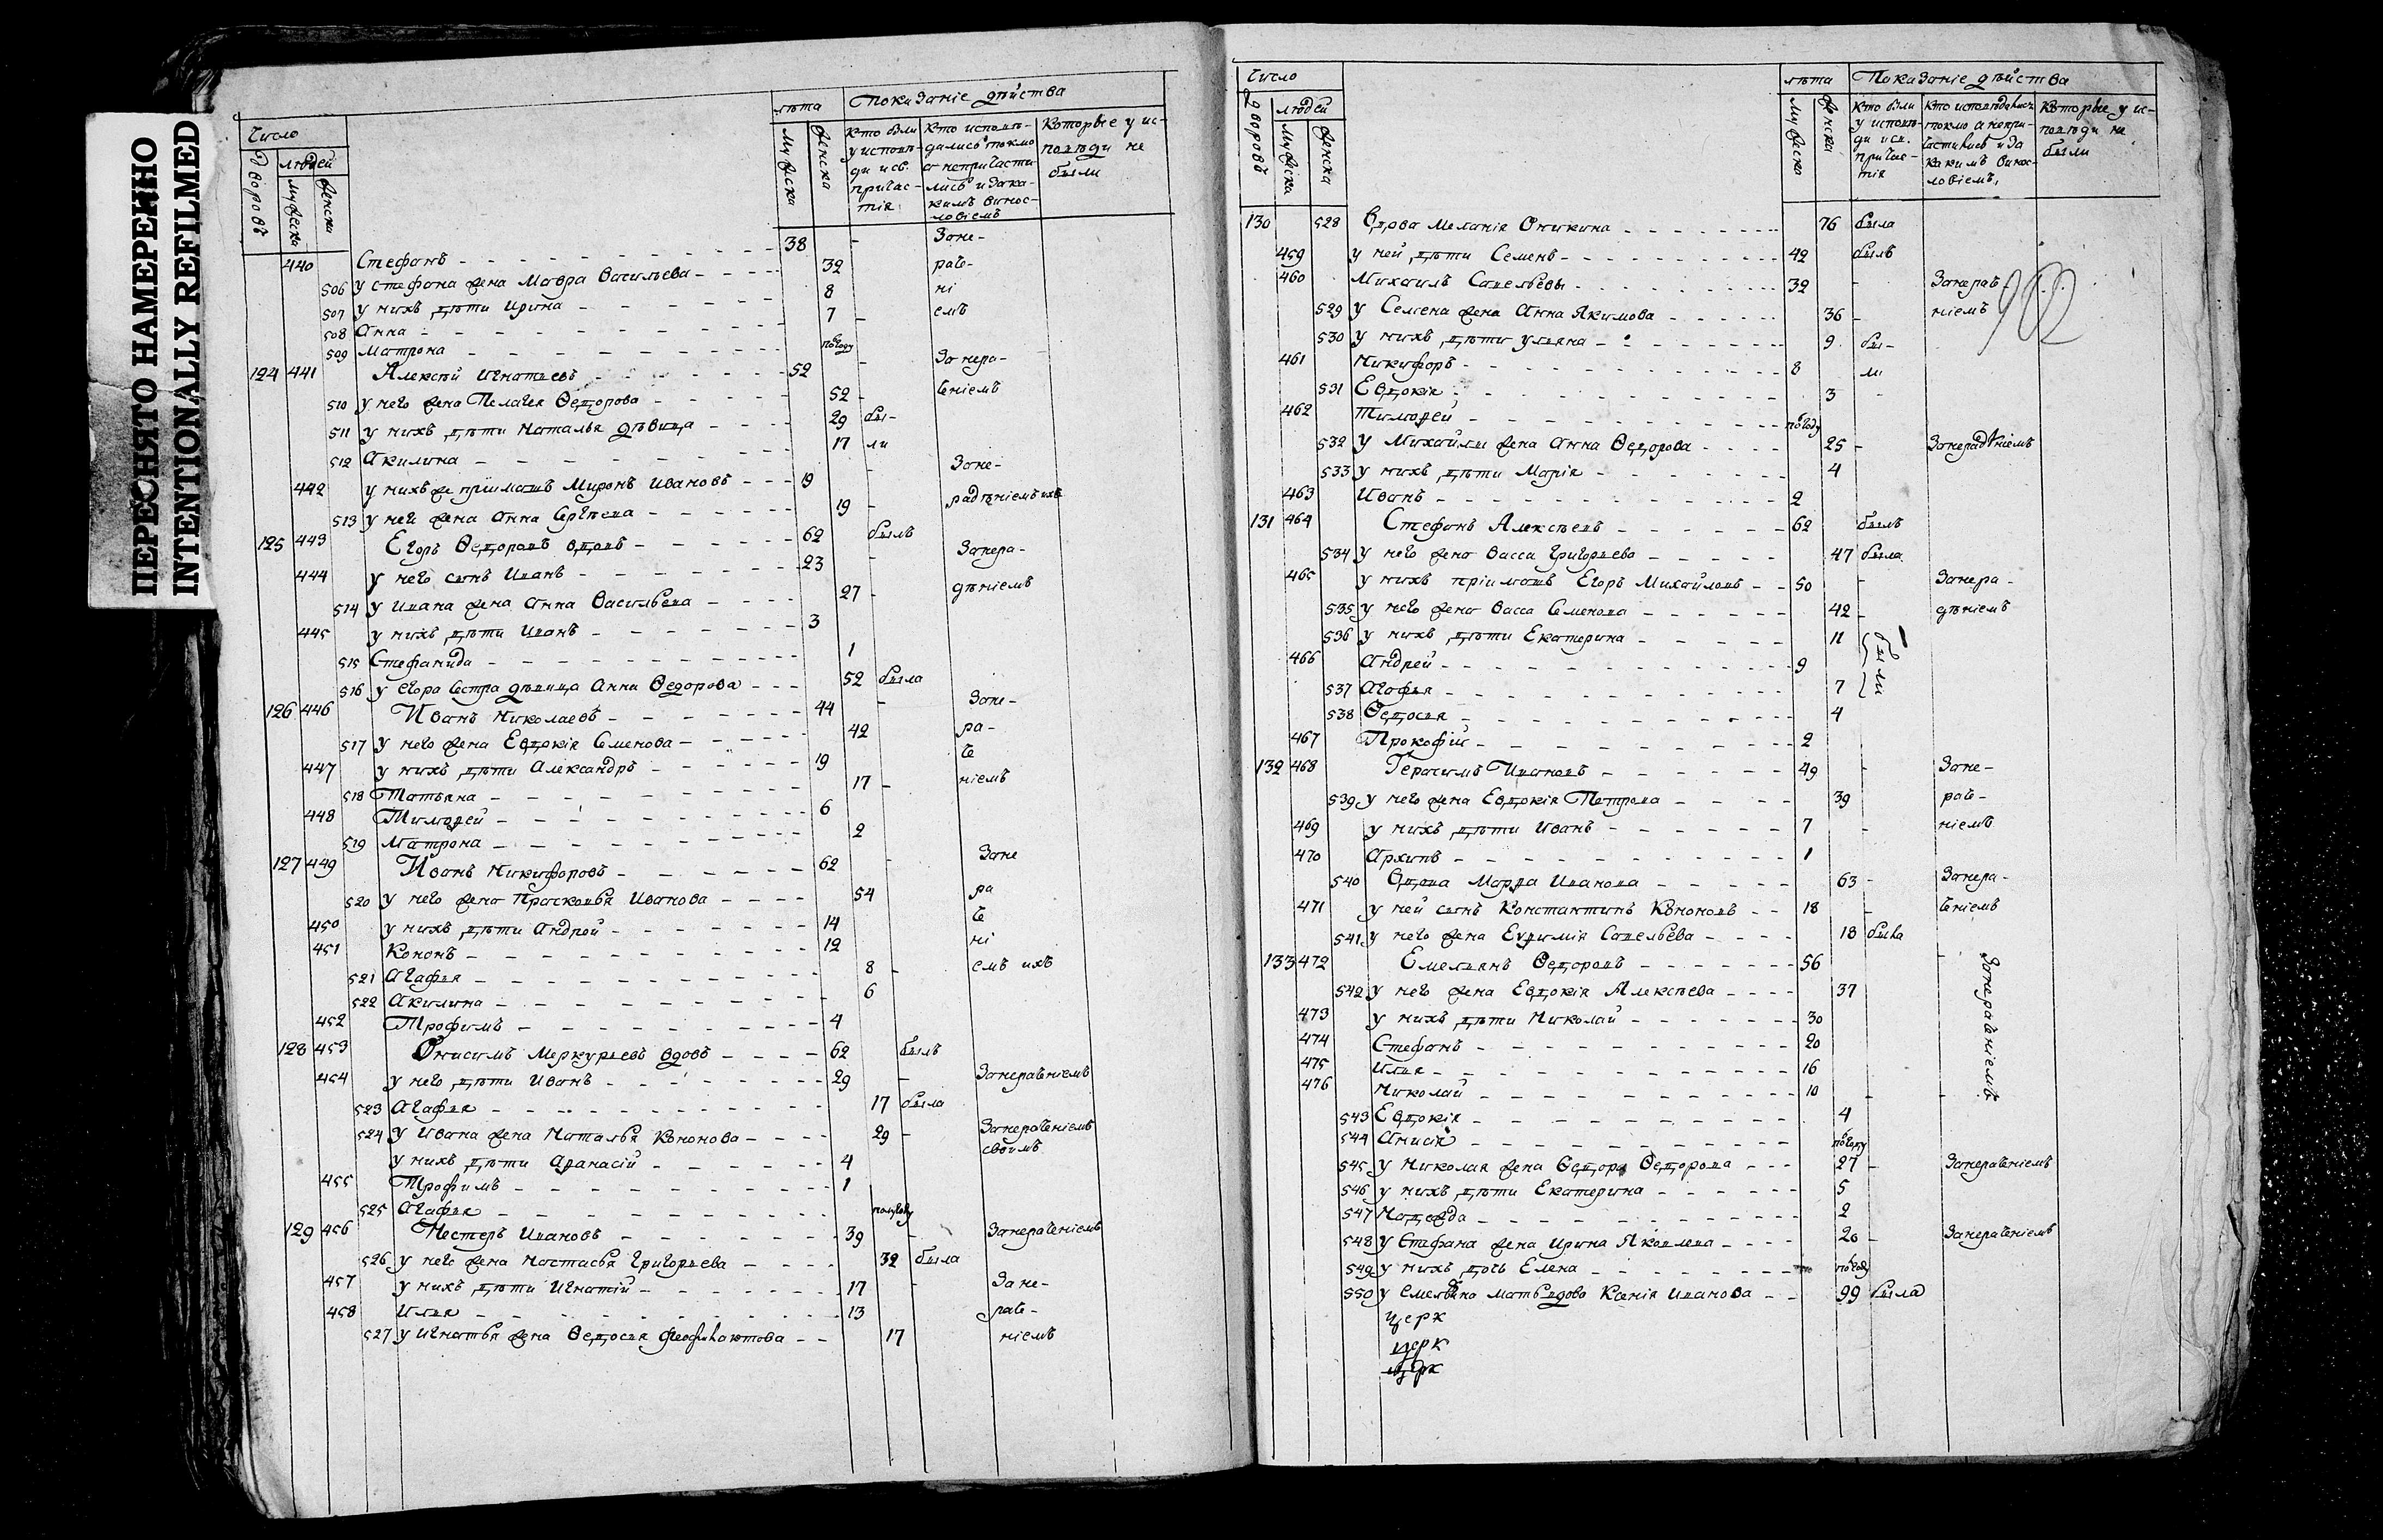 ПЕРЕСНЯТО НАМЕРЕННО
INTENTIONALLY REFILMED
Число
Дворовъ
людей
Мужеска
Женска
лѣта
Мужеска
Женска
Показаніе дѣйства
Кто были у исповѣди и св. причастія
Кто исповѣдались токмо а непричастились и закакимъ винословіемъ
Которые у исповѣди не были
440 Стефанъ 38 Зане-
506 у стефана жена Мавра Васильева 32 рач-
507 у нихъ дѣти Ирина 8 ні
508 Анна 7 емъ
509 Матрона погоду
124 441 Алексѣй Игнатьевъ 52 Занера-
510 у него жена Пелагея Ѳедорова 52 ченіемъ
511 у нихъ дѣти Наталья дѣвица 29 бы-
512 Акилина 17 ли
442 у нихъ же пріимашъ Миронъ Ивановъ 19 Зане-
513 у него жена Анна Сергѣева 19 радѣніемъ ихъ
125 443 Егоръ Ѳедоровъ вдовъ 62 былъ
444 у него сынъ Иванъ 23 Занера-
514 у ивана жена Анна Васильева 27 дѣніемъ
445 у нихъ дѣти Иванъ 3
515 Стефанида 1
516 у егора сестра дѣвица Анна Ѳедорова 52 была
126 446 Иванъ Николаевъ 44 Зане-
517 у него жена Евдокія Семенова 42 ра-
447 у нихъ дѣти Александръ 19 че
518 Татьяна 17 ніемъ
448 Тимоѳей 6
519 Матрона 2
127 449 Иванъ Никифоровъ 62 Зане
520 у него жена Прасковья Иванова 54 ра
450 у нихъ дѣти Андрей 14 че
451 Кононъ 12 ні
521 Агафья 8 емъ ихъ
522 Акилина 6
452 Трофимъ 4
128 453 Онисимъ Меркурьевъ вдовъ 62 былъ
454 у него дѣти Иванъ 29 Занераченіемъ
523 Агафья 17 была
524 у Ивана жена Наталья Кононова 29 Занераченіемъ своимъ
у нихъ дѣти Аѳанасій 4
455 Трофимъ 1
525 Агафья полугоду
129 456 Нестеръ Ивановъ 39 Занераченіемъ
526 у него жена Настасья Григорьева 32 была
457 у нихъ дѣти Игнатій 17 Зане-
458 Илья 13 рач-
527 у Игнатья жена Ѳедосья Феофилактова 17 ніемъ
Число
Дворовъ
людей
Мужеска
Женска
лѣта
Мужеска
Женска
Показаніе дѣйства
Кто были у исповѣди и св. причастія
Кто исповѣдались токмо а непричастились и за какимъ винословіемъ
Которые у исповѣди не были
130 528 Вдова Меланія Оникина 76 была
459 у ней дѣти Семенъ 42 былъ
460 Михаилъ Савельевы 32 Занерач-
529 у Семена жена Анна Якимова 36 ніемъ
530 у нихъ дѣти ульяна 9 бы-
461 Никифоръ 8 ли
531 Евдокія 3
462 Тимоѳей погоду
532 у Михайлы жена Анна Ѳедорова 25 Занерадѣніемъ
533 у нихъ дѣти Марія 4
463 Иванъ 2
131 464 Стефанъ Алексѣевъ 62 былъ
534 у него жена Васса Григорьева 47 была
465 у нихъ пріимашъ Егоръ Михайловъ 50 Занера-
535 у него жена Васса Семенова 42 дѣніемъ
536 у нихъ дѣти Екатерина 11 были
466 Андрей 9
537 Агафья 7
538 Ѳедосья 4
467 Прокофій 2
132 468 Герасимъ Ивановъ 49 Зане-
539 у него жена Евдокія Петрова 39 рач-
469 у нихъ дѣти Иванъ 7 ніемъ
470 Архипъ 1
540 Вдова Марѳа Иванова 63 Занера-
471 у ней сынъ Константинъ Кононовъ 18 ченіемъ
541 у него жена Еуѳимія Савельева 18 была
133 472 Емельянъ Ѳедоровъ 56 Занераченіемъ
542 у него жена Евдокія Алексѣева 37
473 у нихъ дѣти Николай 30
474 Стефанъ 20
475 Илья 16
476 Николай 10
543 Евдокія 4
544 Анисія погоду
545 у Николая жена Ѳедора Ѳедорова 27 Занераченіемъ
546 у нихъ дѣти Екатерина 5
547 Надежда 2
548 у Стефана жена Ирина Яковлева 20 Занераченіемъ
549 у нихъ дочь Елена погоду
550 у Емельяна мать вдова Ксенія Иванова 99 была
церк
церк
церк